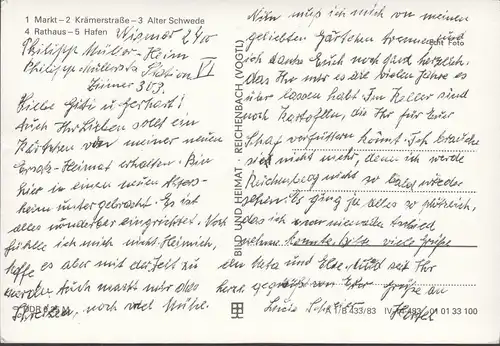 1 Markt – 2 Krämerstraße – 3 Alter Schwede
4 Rathaus – 5 Hafen
Wismar 2400
Philipp Müller-Heim
Philipp Müllerstr. Station VI
Zimmer 303.
Liebe Gitti u. Gerhard!
Auch Ihr Lieben sollt ein
Kärtchen von meiner neuen
Ersatz-Heimat erhalten. Bin
hier in einem neuen Alters-
heim untergebracht. Es ist
alles wunderbar eingerichtet. Noch
fühle ich mich nicht heimisch,
hoffe es aber mit der Zeit zu
werden. Auch macht mir das
Schreiben noch viel Mühe.
BILD UND HEIMAT · REICHENBACH (VOGTL)
Nun muß ich mich von meinem
geliebten Gärtchen trennen und
echt Foto
ich danke Euch noch ganz herzlich,
das Ihr mir es die vielen Jahre
über lassen habt. Im Keller sind
noch Kartoffeln, die Ihr für Euer
Schaf verfüttern könnt. Ich brauche
sie nicht mehr, denn ich werde
Reichenberg nicht so bald wieder
sehen. Es ging ja alles so plötzlich,
das ich von niemanden Abschied
nehmen konnte. Viele Grüße
an Meta und Else. Und seid Ihr
herzl. gegrüßt von Eurer
A 1/B 433/83 IV 01 01 33 100